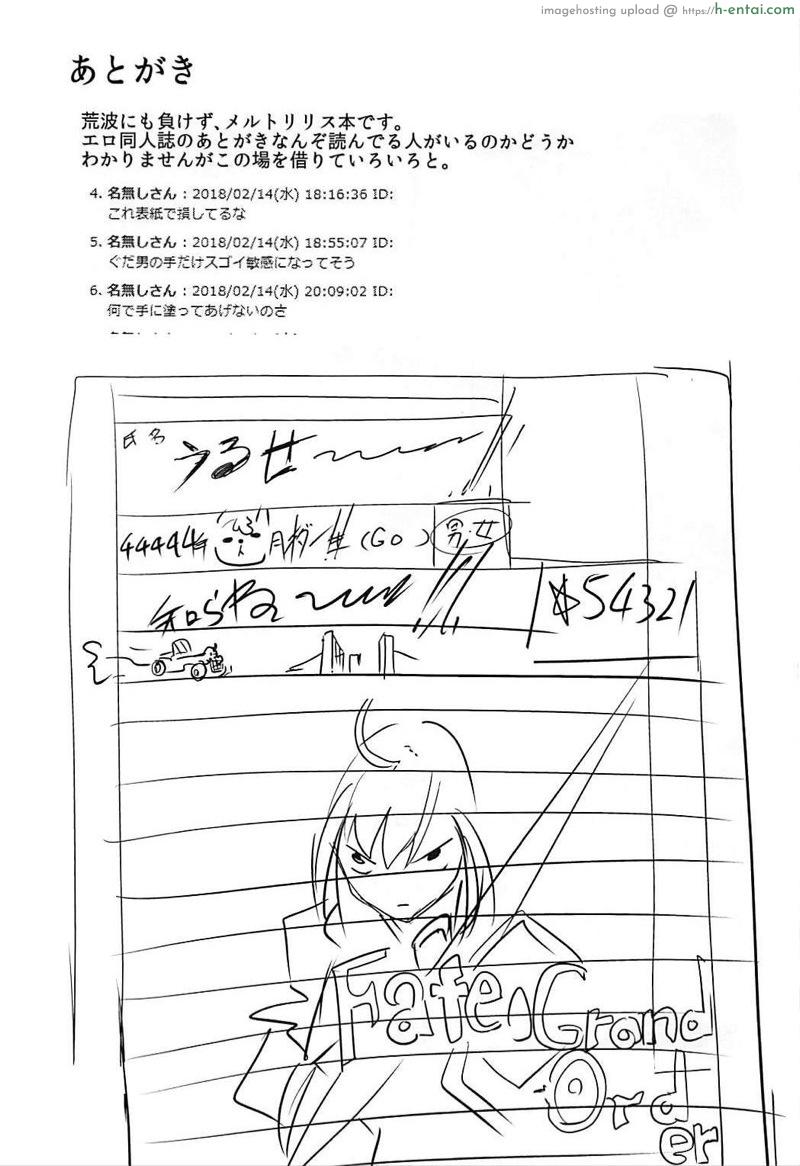 imagehosting upload @ https://h-entai.com
あとがき
荒波にも負けず、メルトリリス本です。
エロ同人誌のあとがきなんぞ読んでる人がいるのかどうか
わかりませんがこの場を借りていろいろと。
4. 名無しさん : 2018/02/14(水) 18:16:36 ID:
これ表紙で損してるな
5. 名無しさん : 2018/02/14(水) 18:55:07 ID:
ぐだ男の手だけスゴイ敏感になってそう
6. 名無しさん : 2018/02/14(水) 20:09:02 ID:
何で手に塗ってあげないのさ
氏名
うるせ
44444年 月 (Go) 男・女
知らねェ
¥54321
Fate
Grand
Order